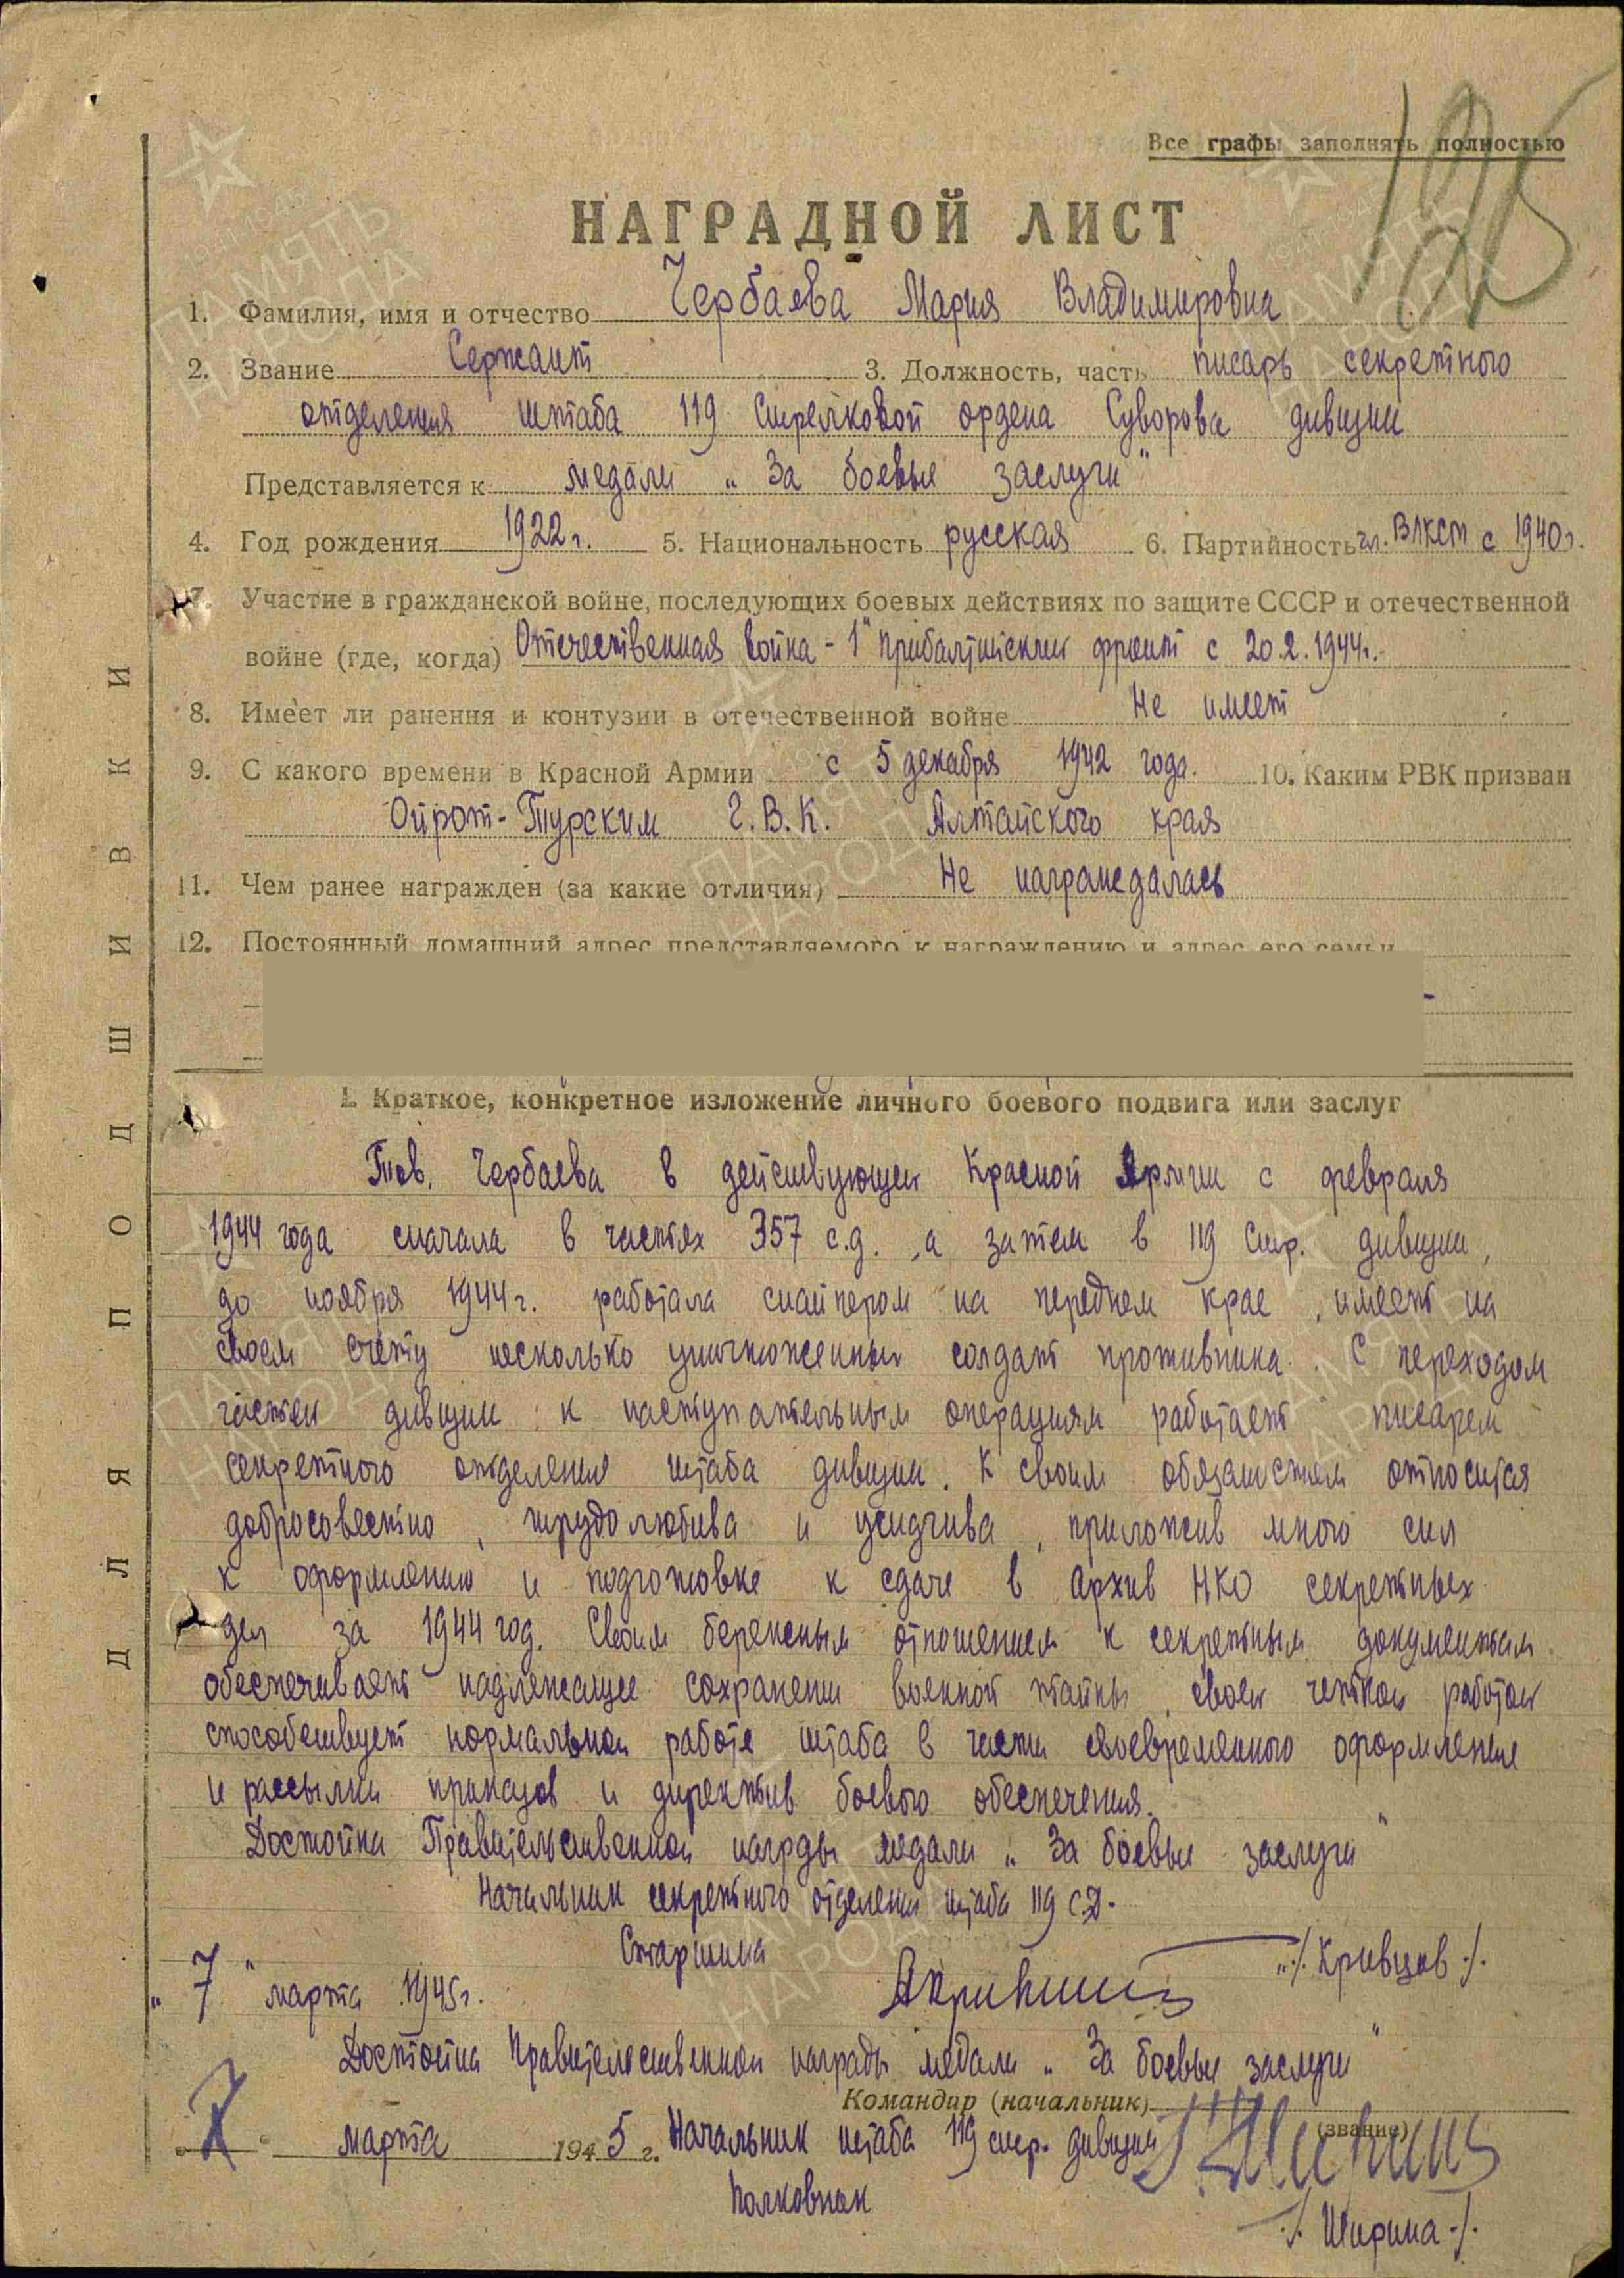 195
Все графы заполнять полностью
НАГРАДНОЙ ЛИСТ
1. Фамилия, имя и отчество Чербаева Мария Владимировна
2. Звание Сержант 3. Должность, часть писарь секретного
отделения штаба 119 Стрелковой ордена Суворова дивизии
Представляется к медали „За боевые заслуги"
4. Год рождения 1922 г. 5. Национальность русская 6. Партийность чл. ВЛКСМ с 1940 г.
7. Участие в гражданской войне, последующих боевых действиях по защите СССР и отечественной
войне (где, когда) Отечественная война - 1й Прибалтийский фронт с 20.2.1944 г.
8. Имеет ли ранения и контузии в отечественной войне Не имеет
9. С какого времени в Красной Армии с 5 декабря 1942 года. 10. Каким РВК призван
Ойрот-Турским Г.В.К. Алтайского края
11. Чем ранее награжден (за какие отличия) Не награждалась
12. Постоянный домашний адрес представляемого к награждению и адрес его семьи
I. Краткое, конкретное изложение личного боевого подвига или заслуг
Тов. Чербаева в действующей Красной Армии с февраля
1944 года сначала в частях 357 с.д., а затем в 119 Стр. дивизии,
до ноября 1944 г. работала снайпером на переднем крае, имеет на
своем счету несколько уничтоженных солдат противника. С переходом
частей дивизии к наступательным операциям работает писарем
секретного отделения штаба дивизии. К своим обязаностям относится
добросовестно, трудолюбива и усидчива, приложив много сил
к оформлению и подготовке к сдаче в Архив НКО секретных
дел за 1944 год. Своим бережным отношением к секретным документам
обеспечивает надлежащее сохранение военной тайны, своей четкой работой
способствует нормальной работе штаба в части своевременного оформления
и рассылки приказов и директив боевого обеспечения.
Достойна Правительственной нагрды медали „За боевые заслуги"
Начальник секретного отделения штаба 119 С.Д.
Старшина
/Кривцов/
„7" марта 1945 г.
Достойна Правительственной награды медали „За боевые заслуги"
Командир (начальник)
(звание)
7 марта 1945 г. Начальник штаба 119 стр. дивизии
Полковник
/Ширина/
ДЛЯ ПОДШИВКИ
ПАМЯТЬ НАРОДА